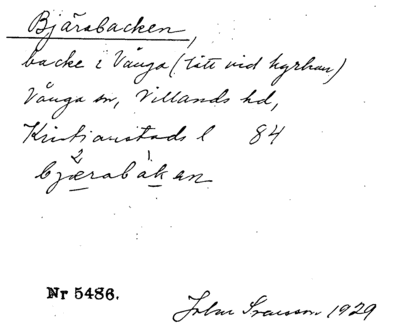 Bjärabacken,
backe i Vånga (tätt vid kyrkan)
Vånga sn, Villands hd,
Kristianstads l 84
bjærabakan
Nr 5486.
John Svensson 1929